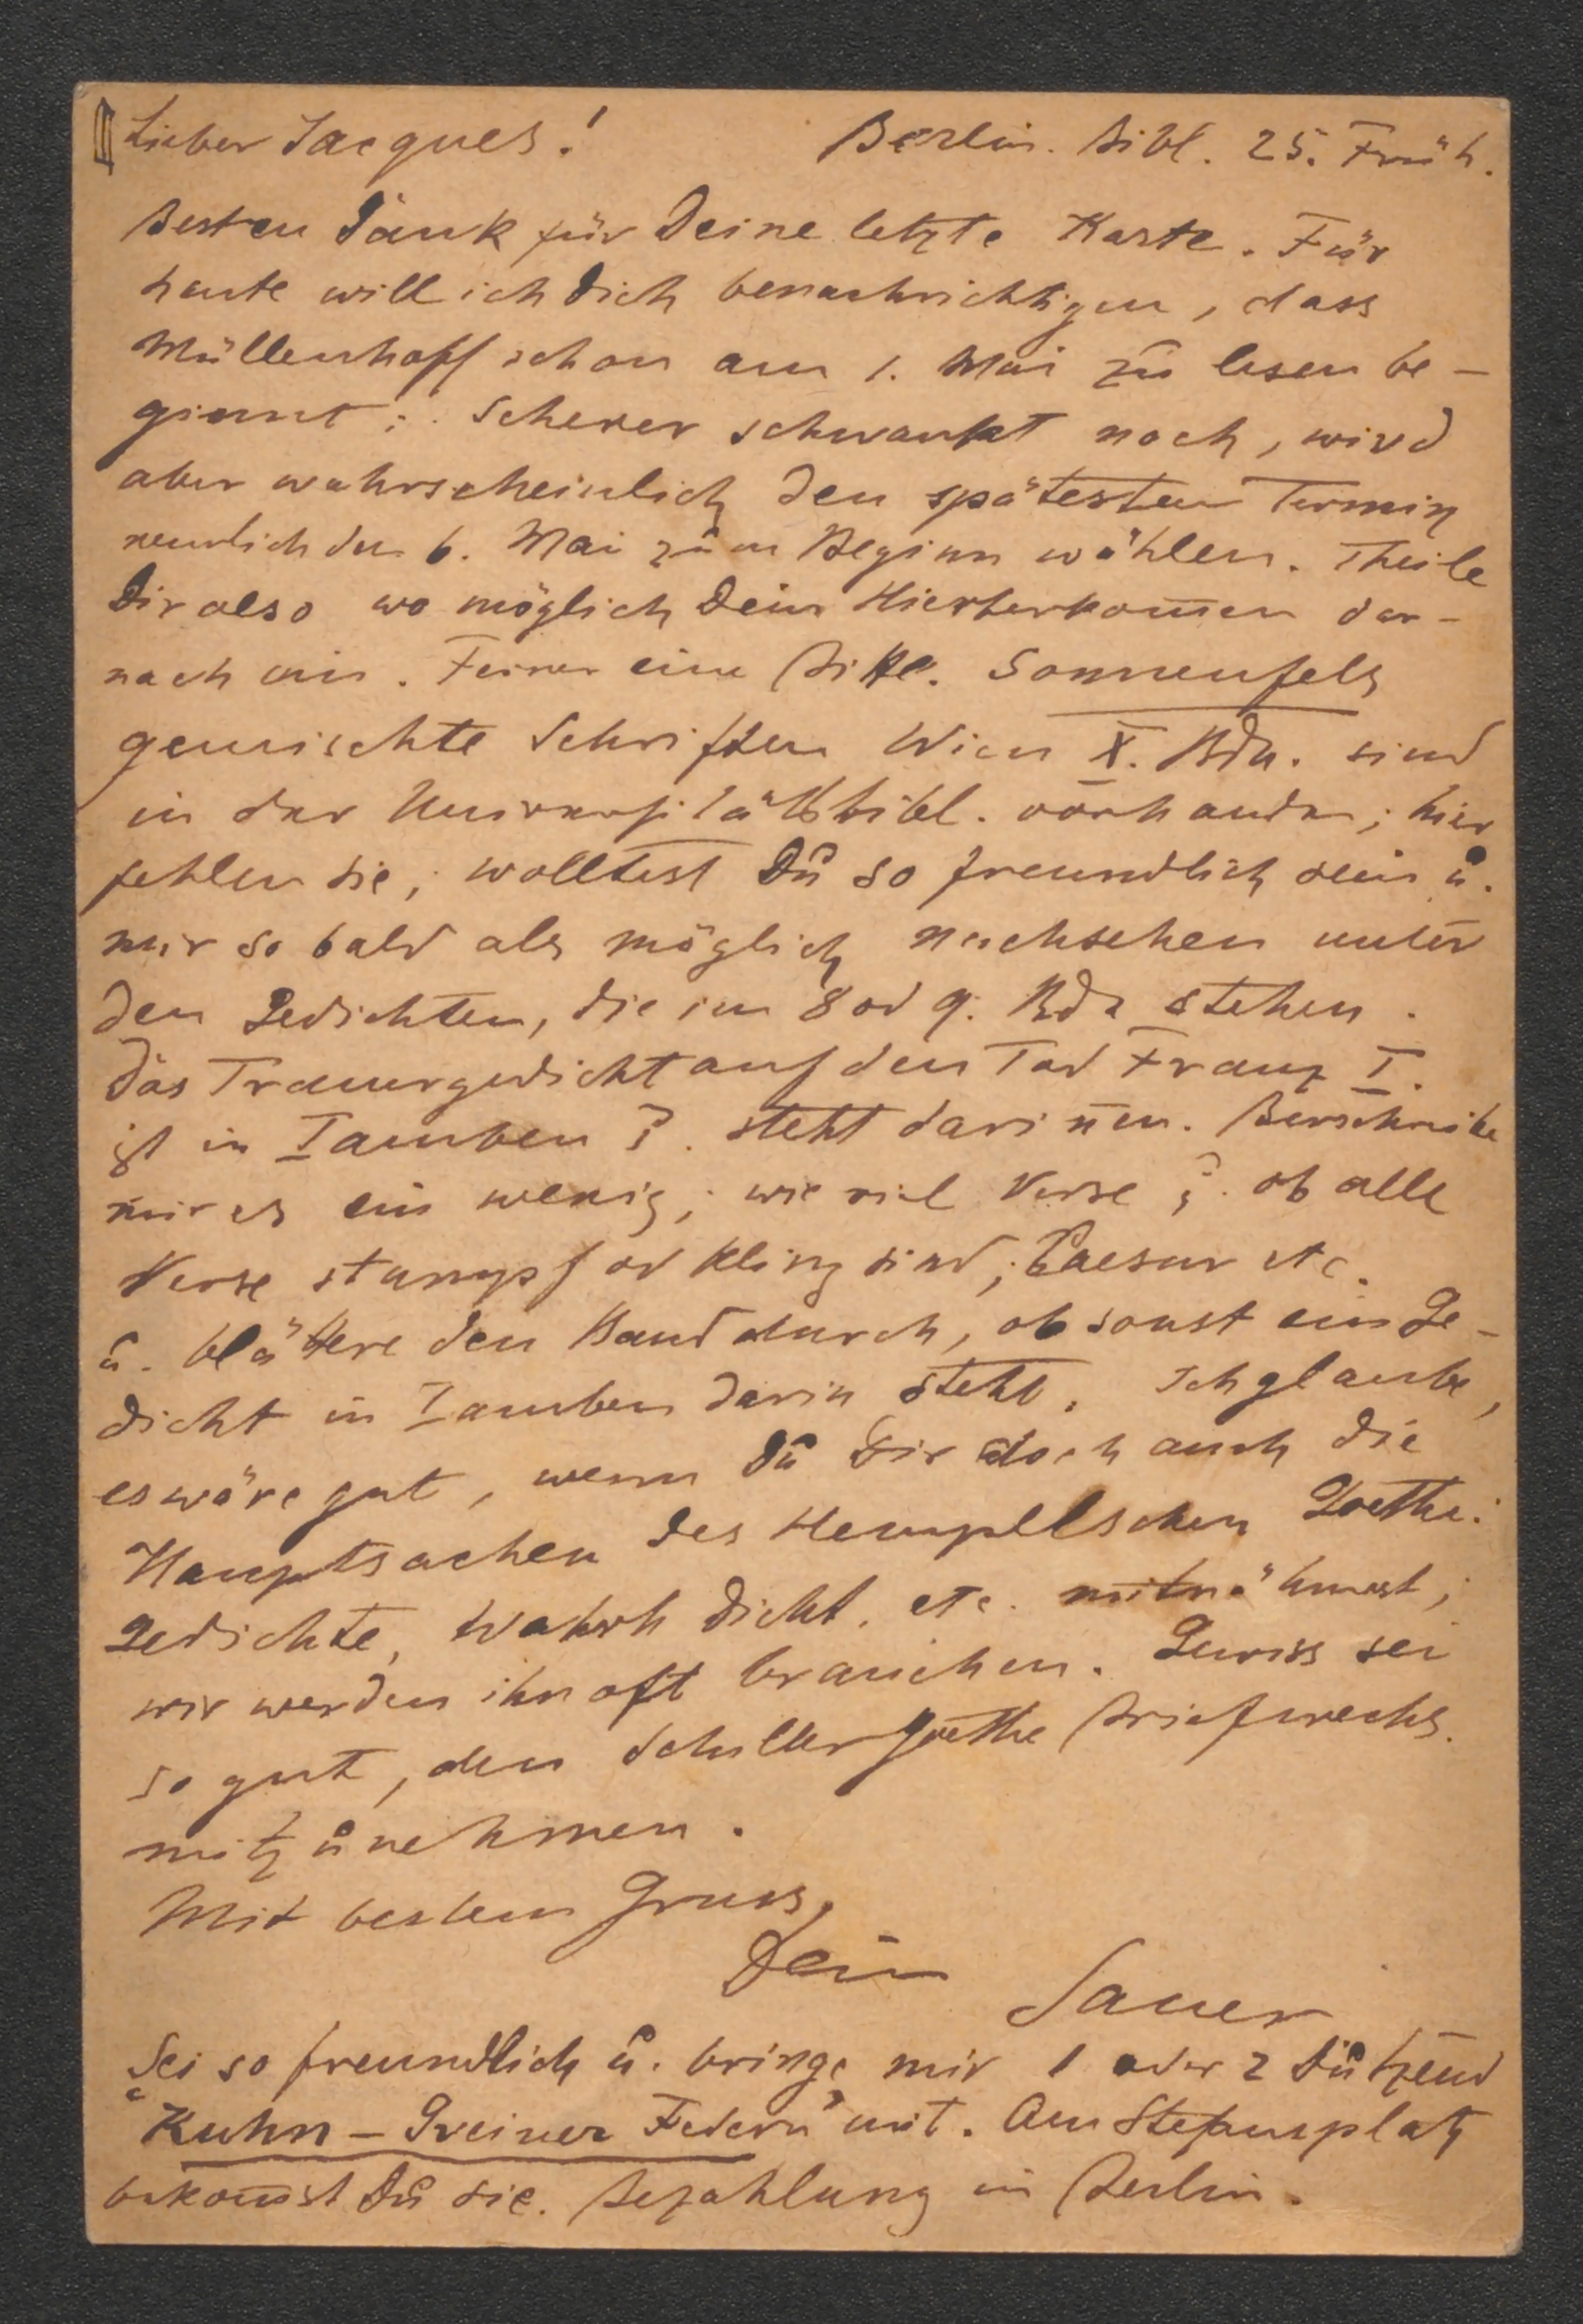 Lieber Jacques! Berlin. Bibl. 25. Früh.
Besten Dank für Deine letzte Karte. Für
heute will ich Dich benachrichtigen, dass
Müllenhoff schon am 1. Mai zu lesen be-
ginnt; Scherer schwankt noch, wird
aber wahrscheinlich den spätesten Termin
nemlich den 6. Mai zum Beginn wählen. Theile
Dir also wo möglich Dein Hierherkom̅en dar-
nach ein. Ferner eine Bitte. Sonnenfels
gemischte Schriften Wien X. Bdn. sind
in der Universitätsbibl. vorhanden; hier
fehlen sie; wolltest Du so freundlich sein u.
mir so bald als möglich nachsehen unter
den Gedichten, die im 8 od 9. Bde stehen.
Das Trauergedicht auf den Tod Franz I.
ist in Iamben?. steht darin̅en. Beschreibe
mir es ein wenig; wie viel Verse?. ob alle
Verse stumpf od kling sind; Caesur etc.
u. blättere den Band durch, ob sonst ein Ge-
dicht in Iamben darin steht. Ich glaube,
es wäre gut, wenn Du Dir doch auch die
Hauptsachen des Hempelschen Goethe:
Gedichte, Wahrh Dicht. etc. mitnähmest;
wir werden ihn oft brauchen. Gewiss sei
so gut, den Schiller Goethe Briefwechs.
mitzunehmen.
Mit bestem Gruss,
Dein
Sauer
Sei so freundlich u. bringe mir 1 oder 2 Dutzend
"Kuhn-Greiner Federn" mit. Am Stefansplatz
bekom̅st Du sie. Bezahlung in Berlin.